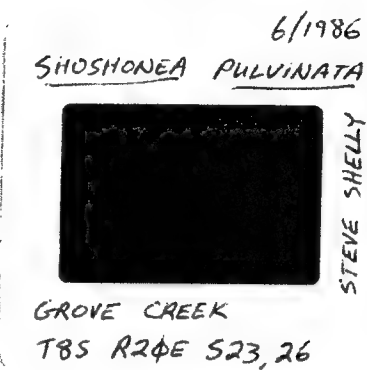 6/1986
SHOSHONEA PULVINATA
STEVE SHELLY
GROVE CREEK
T8S R2φE S23, 26